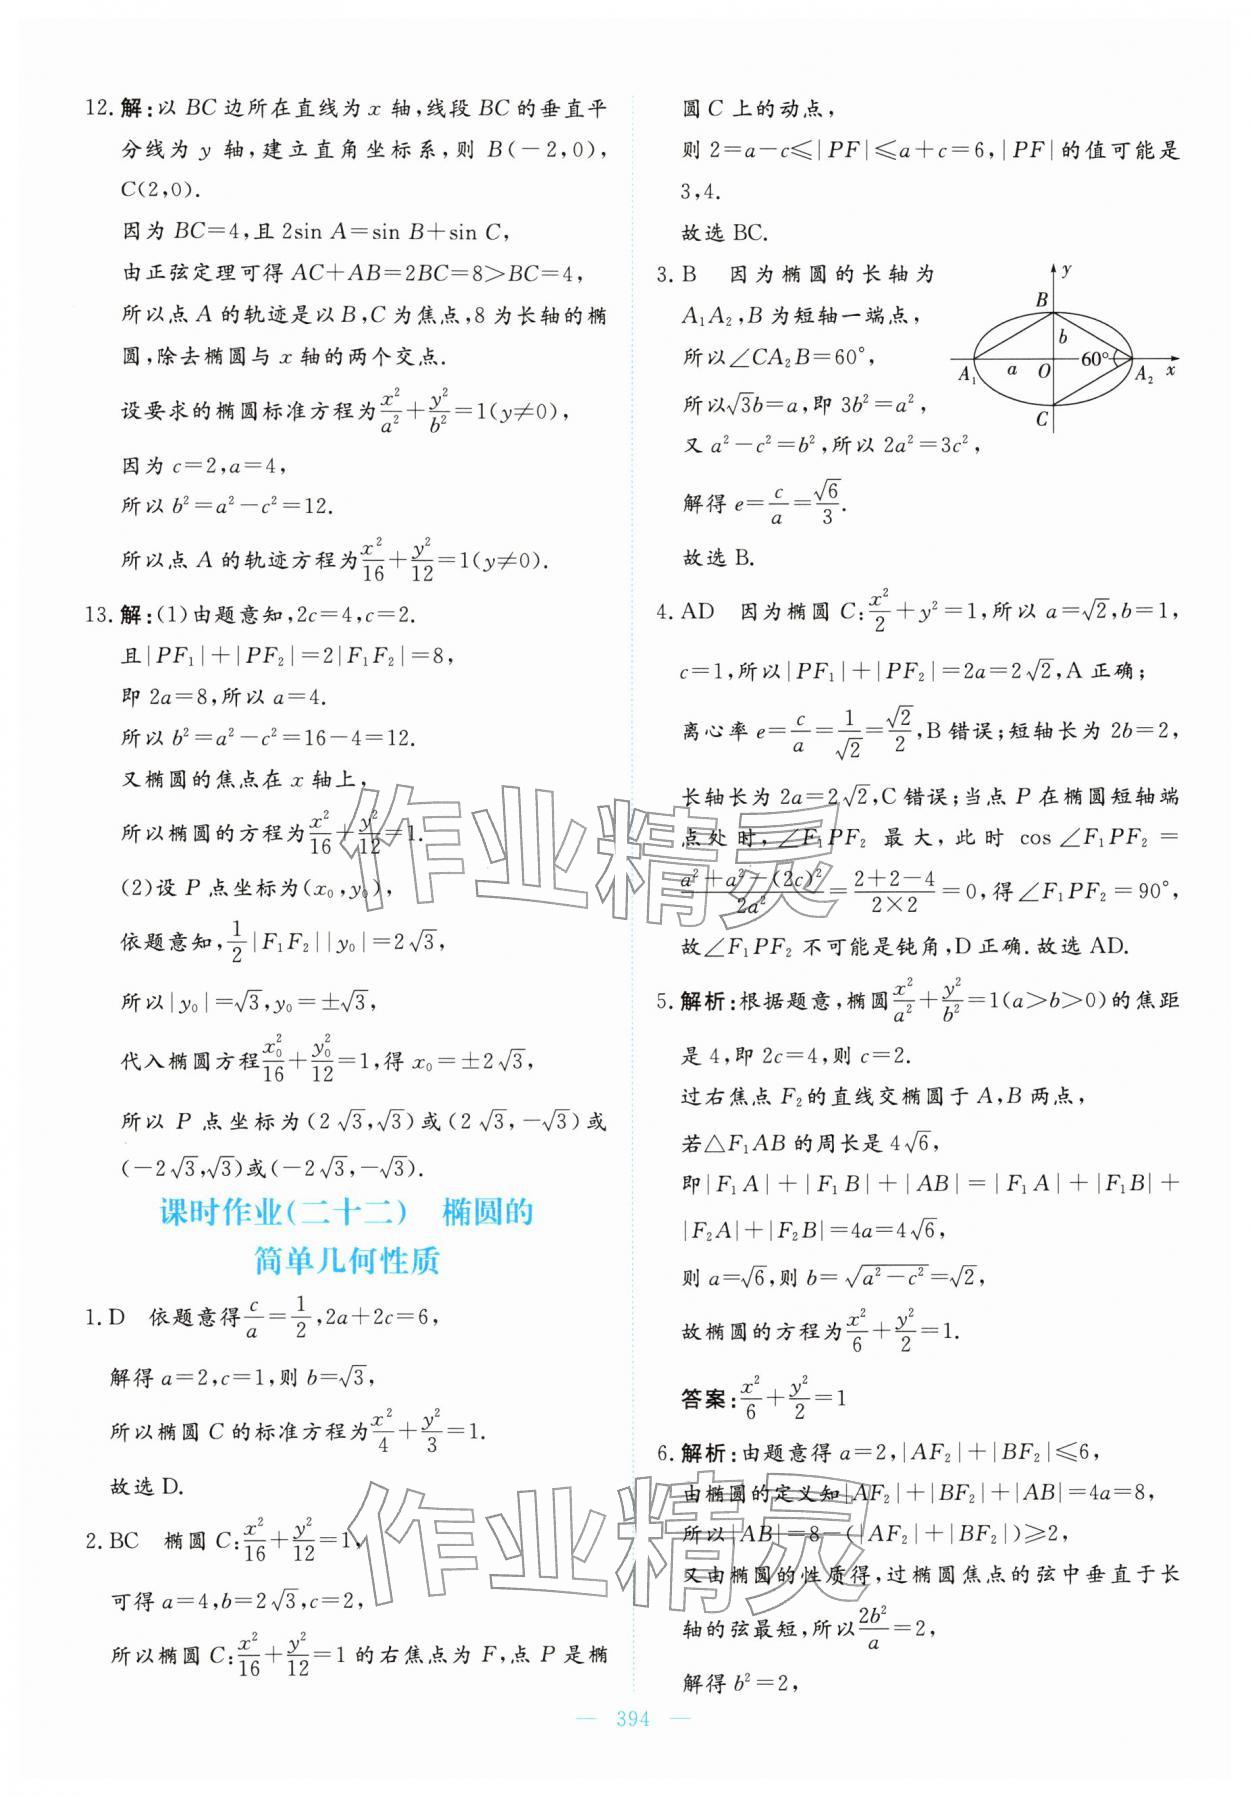 12.解:以 BC 边所在直线为 x 轴,线段 BC 的垂直平
分线为 y 轴,建立直角坐标系,则 B(-2,0),
C(2,0).
因为 BC=4,且 2sin A=sin B+sin C,
由正弦定理可得 AC+AB=2BC=8>BC=4,
所以点 A 的轨迹是以 B,C 为焦点,8 为长轴的椭
圆,除去椭圆与 x 轴的两个交点.
设要求的椭圆标准方程为x²/a²+y²/b²=1(y≠0),
因为 c=2,a=4,
所以 b²=a²-c²=12.
所以点 A 的轨迹方程为x²/16+y²/12=1(y≠0).
13.解:(1)由题意知,2c=4,c=2.
且|PF₁|+|PF₂|=2|F₁F₂|=8,
即 2a=8,所以 a=4.
所以 b²=a²-c²=16-4=12.
又椭圆的焦点在 x 轴上,
所以椭圆的方程为x²/16+y²/12=1.
(2)设 P 点坐标为(x₀,y₀),
依题意知,1/2|F₁F₂||y₀|=2√3,
所以|y₀|=√3,y₀=±√3,
代入椭圆方程x₀²/16+y₀²/12=1,得 x₀=±2√3,
所以 P 点坐标为(2√3,√3)或(2√3,-√3)或
(-2√3,√3)或(-2√3,-√3).
课时作业(二十二) 椭圆的
简单几何性质
1.D 依题意得c/a=1/2,2a+2c=6,
解得 a=2,c=1,则 b=√3,
所以椭圆 C 的标准方程为x²/4+y²/3=1.
故选 D.
2.BC 椭圆 C:x²/16+y²/12=1,
可得 a=4,b=2√3,c=2,
所以椭圆 C:x²/16+y²/12=1 的右焦点为 F,点 P 是椭
圆 C 上的动点,
则 2=a-c≤|PF|≤a+c=6,|PF|的值可能是
3,4.
故选 BC.
3.B 因为椭圆的长轴为
A₁A₂,B 为短轴一端点,
所以∠CA₂B=60°,
所以√3b=a,即 3b²=a²,
又 a²-c²=b²,所以 2a²=3c²,
解得 e=c/a=√6/3.
故选 B.
y
B
b
60°
A₁
a
O
A₂
x
C
4.AD 因为椭圆 C:x²/2+y²=1,所以 a=√2,b=1,
c=1,所以|PF₁|+|PF₂|=2a=2√2,A 正确;
离心率 e=c/a=1/√2=√2/2,B 错误;短轴长为 2b=2,
长轴长为 2a=2√2,C 错误;当点 P 在椭圆短轴端
点处时,∠F₁PF₂ 最大,此时 cos∠F₁PF₂=
(a²+a²-(2c)²)/2a²=(2+2-4)/(2×2)=0,得∠F₁PF₂=90°,
故∠F₁PF₂ 不可能是钝角,D 正确.故选 AD.
5.解析:根据题意,椭圆x²/a²+y²/b²=1(a>b>0)的焦距
是 4,即 2c=4,则 c=2.
过右焦点 F₂的直线交椭圆于 A,B 两点,
若△F₁AB 的周长是 4√6,
即|F₁A|+|F₁B|+|AB|=|F₁A|+|F₁B|+
|F₂A|+|F₂B|=4a=4√6,
则 a=√6,则 b=√(a²-c²)=√2,
故椭圆的方程为x²/6+y²/2=1.
答案:x²/6+y²/2=1
6.解析:由题意得 a=2,|AF₂|+|BF₂|≤6,
由椭圆的定义知|AF₂|+|BF₂|+|AB|=4a=8,
所以|AB|=8-(|AF₂|+|BF₂|)≥2,
又由椭圆的性质得,过椭圆焦点的弦中垂直于长
轴的弦最短,所以2b²/a=2,
解得 b²=2,
— 394 —
作业精灵
作业精灵